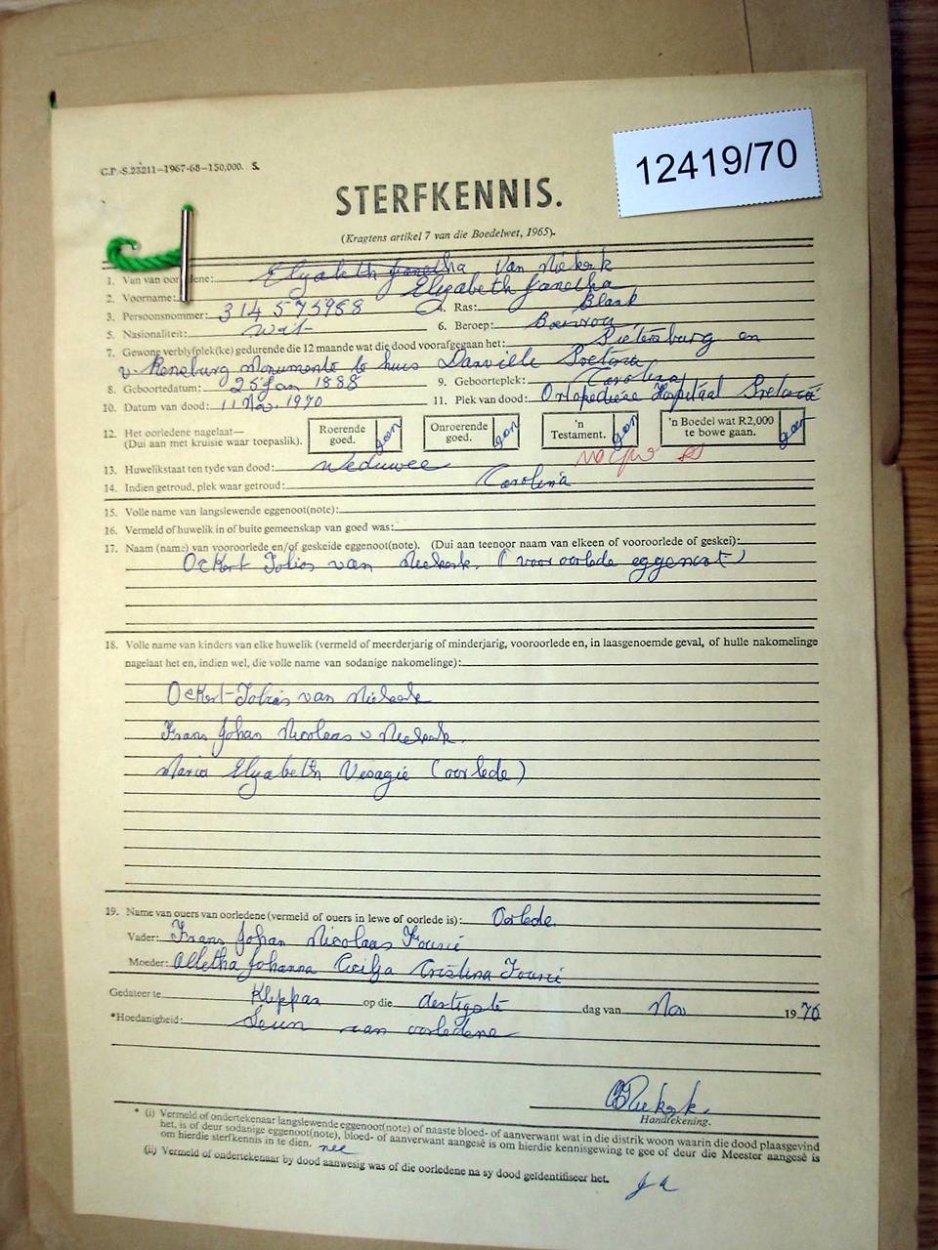 C.P.-S.23211—1967-68—150,000. S.
12419/70
STERFKENNIS.
(Kragtens artikel 7 van die Boedelwet, 1965).
1. Van van oorledene: van Niekerk
2. Voorname: Elizabeth Janetha
3. Persoonsnommer: 314 575988 4. Ras: Blank
5. Nasionaliteit: Wit 6. Beroep: Boervrou
7. Gewone verblyfplek(ke) gedurende die 12 maande wat die dood voorafgegaan het: Pietersburg en
v. Rensburg Monumente te huis Danville Pretoria
8. Geboortedatum: 25 Jan 1888 9. Geboorteplek: Carolina
10. Datum van dood: 11 Nov. 1970 11. Plek van dood: Hospitaal Pretoria
12. Het oorledene nagelaat— Roerende goed. geen Onroerende goed. geen 'n Testament. geen 'n Boedel wat R2,000 te bowe gaan. geen
(Dui aan met kruisie waar toepaslik).
13. Huwelikstaat ten tyde van dood: Weduwee
14. Indien getroud, plek waar getroud: Carolina
15. Volle name van langslewende eggenoot(note):
16. Vermeld of huwelik in of buite gemeenskap van goed was:
17. Naam (name) van vooroorlede en/of geskeide eggenoot(note). (Dui aan teenoor naam van elkeen of vooroorlede of geskei):
Ockert Tobias van Niekerk. (vooroorlede eggenoot)
18. Volle name van kinders van elke huwelik (vermeld of meerderjarig of minderjarig, vooroorlede en, in laasgenoemde geval, of hulle nakomelinge
nagelaat het en, indien wel, die volle name van sodanige nakomelinge):
Ockert-Tobias van Niekerk
Frans Johan Nicolaas v Niekerk.
Maria Elizabeth Visagie (oorlede)
19. Name van ouers van oorledene (vermeld of ouers in lewe of oorlede is): Oorlede.
Vader: Frans Johan Nicolaas Fourié
Moeder: Alletha Johanna Cecilja Cristina Fourié
Gedateer te Klippan op die dertigste dag van Nov 19 70
*Hoedanigheid: Seun van oorledene
Niekerk.
Handtekening.
* (i) Vermeld of ondertekenaar langslewende eggenoot(note) of naaste bloed- of aanverwant wat in die distrik woon waarin die dood plaasgevind
het, is of deur sodanige eggenoot(note), bloed- of aanverwant aangesê is om hierdie kennisgewing te gee of deur die Meester aangesê is
om hierdie sterfkennis in te dien. nee
(ii) Vermeld of ondertekenaar by dood aanwesig was of die oorledene na sy dood geïdentifiseer het. Ja